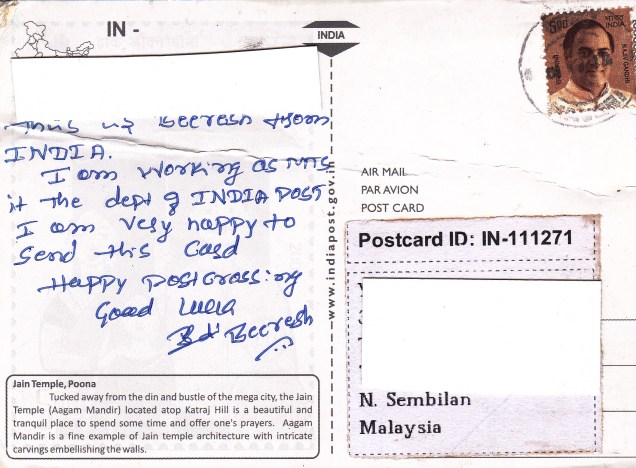 IN -
INDIA
500
भारत INDIA
RAJIV GANDHI
This is Beeresh from
INDIA.
I am working as MTS
it the dept of INDIA POST
I am very happy to
send this Card
Happy postcrossing
Good Luck
Beeresh
www.indiapost.gov.in
AIR MAIL
PAR AVION
POST CARD
Postcard ID: IN-111271
N. Sembilan
Malaysia
Jain Temple, Poona
Tucked away from the din and bustle of the mega city, the Jain
Temple (Aagam Mandir) located atop Katraj Hill is a beautiful and
tranquil place to spend some time and offer one's prayers. Aagam
Mandir is a fine example of Jain temple architecture with intricate
carvings embellishing the walls.